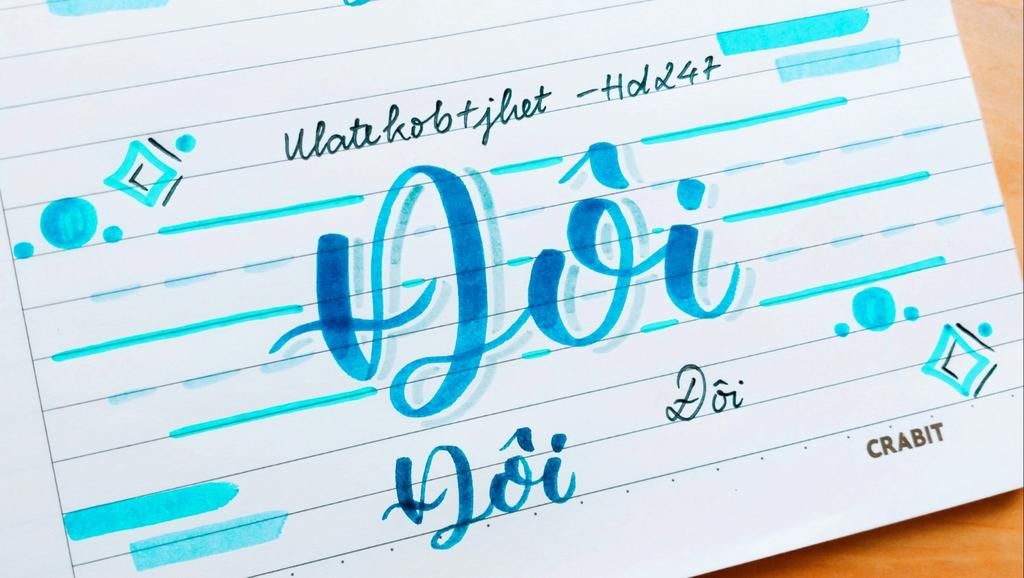 Ulatekob+jhet -Hd247
Đôi
Đôi
Đôi
CRABIT